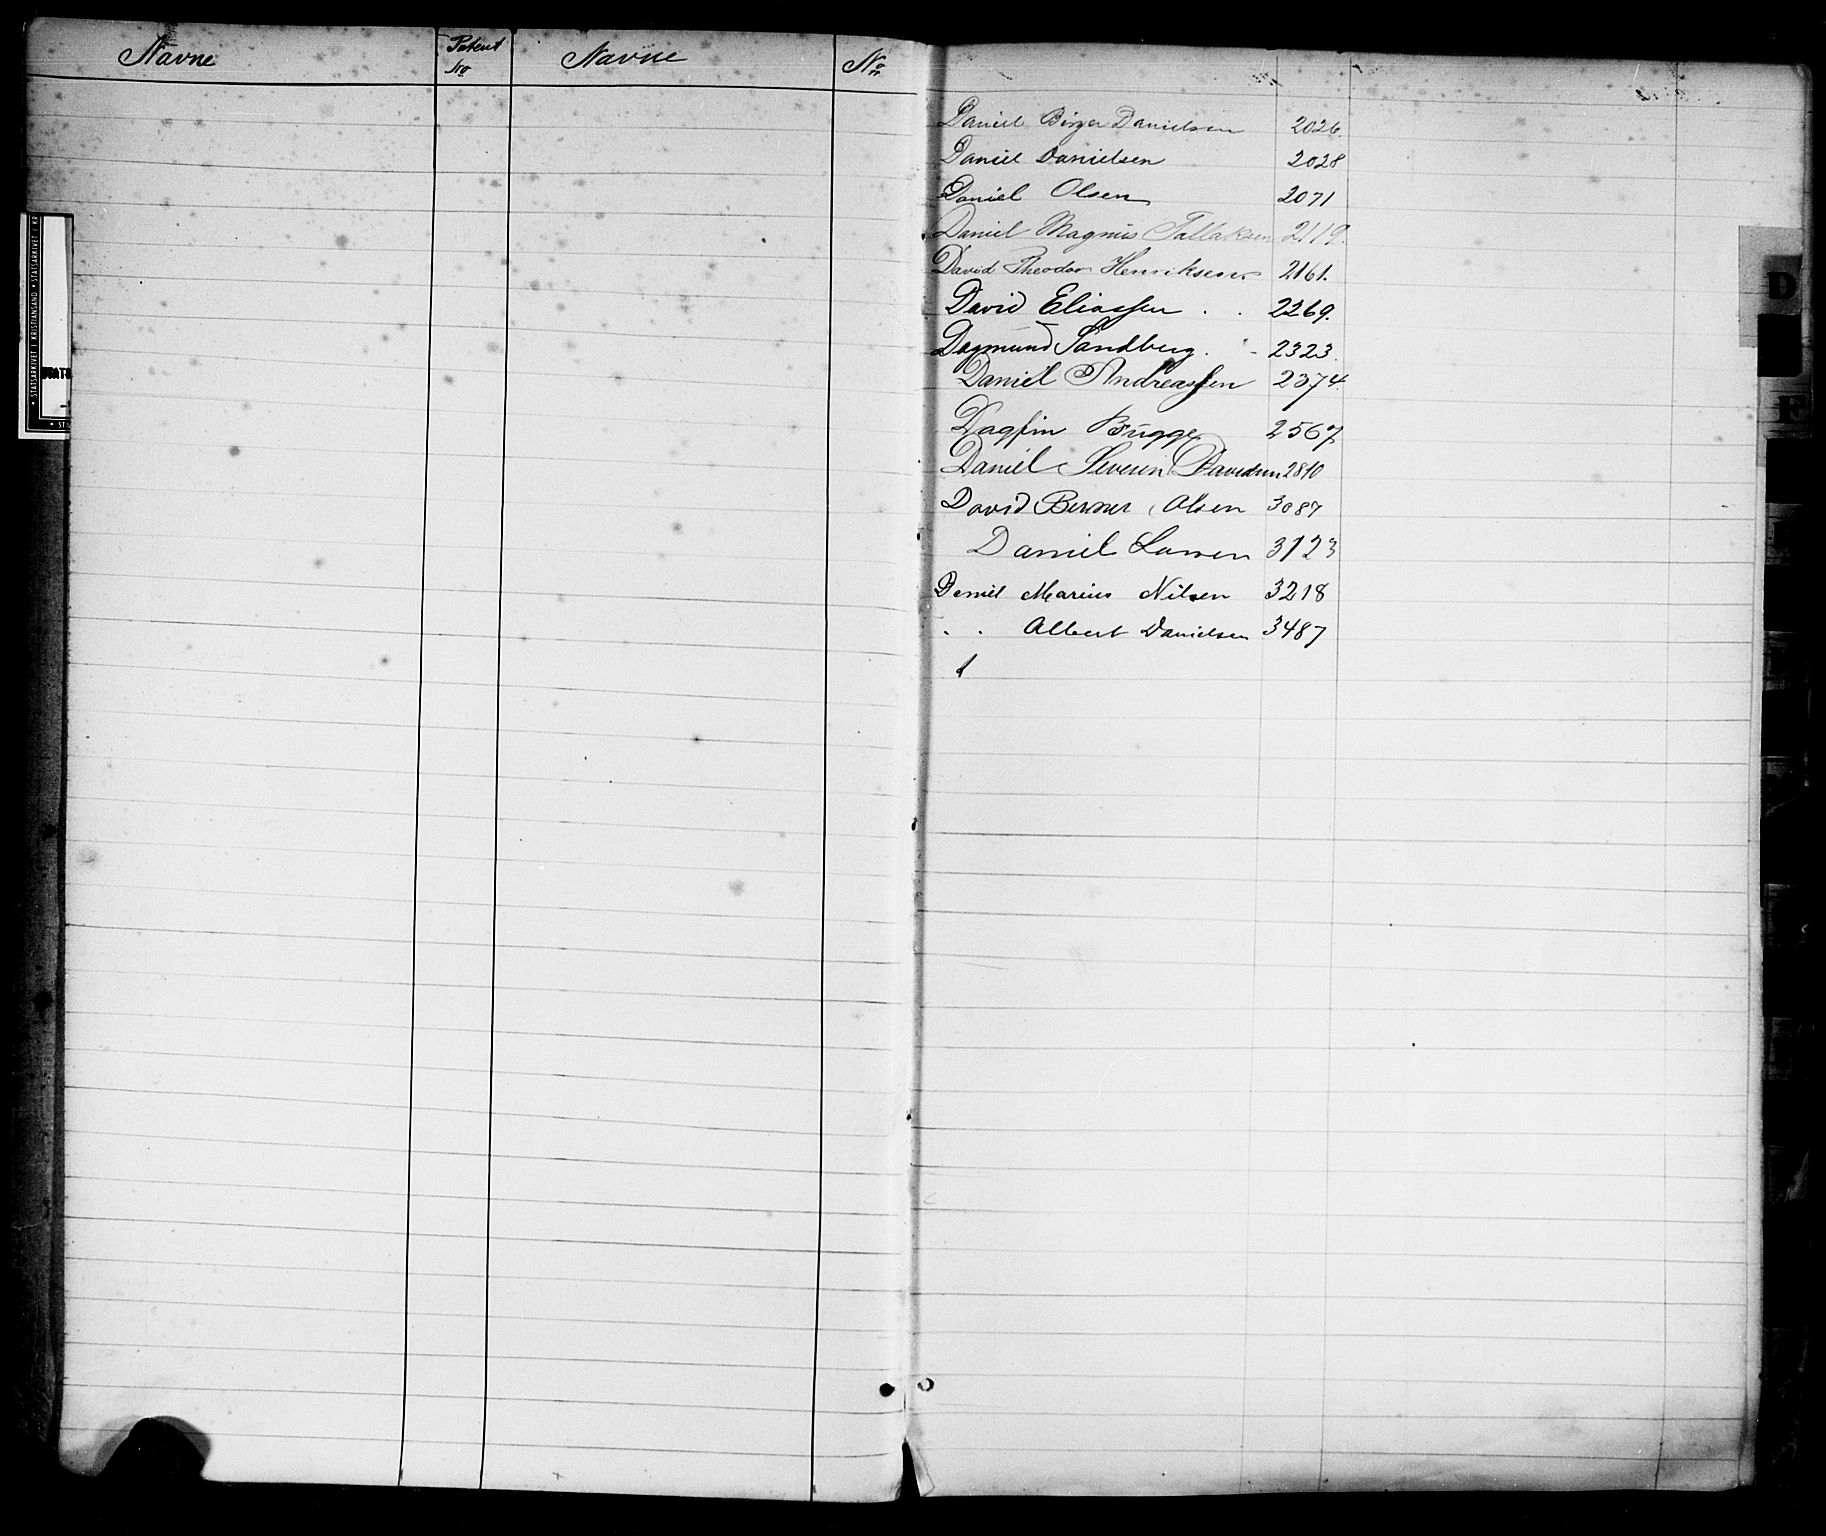 Navne Patent No Navne No
STATSARKIVET I KRISTIANSAND • STATSARKIVET I KR
STATS
Daniel Birger Danielsen 2026.
Daniel Danielsen 2028
Daniel Olsen 2071
Daniel Magnus Tallaksen 2119.
David Theodor Henriksen 2161.
David Eliassen . . 2269.
Dagmund Sandberg. - 2323.
Daniel Andreassen 2374.
Dagfin Bugge 2567
Daniel Severin Davidsen 2810
David Berner Olsen 3087
Daniel Larsen 3123
Daniel Marius Nilsen 3218
. . Albert Danielsen 3487
D
E